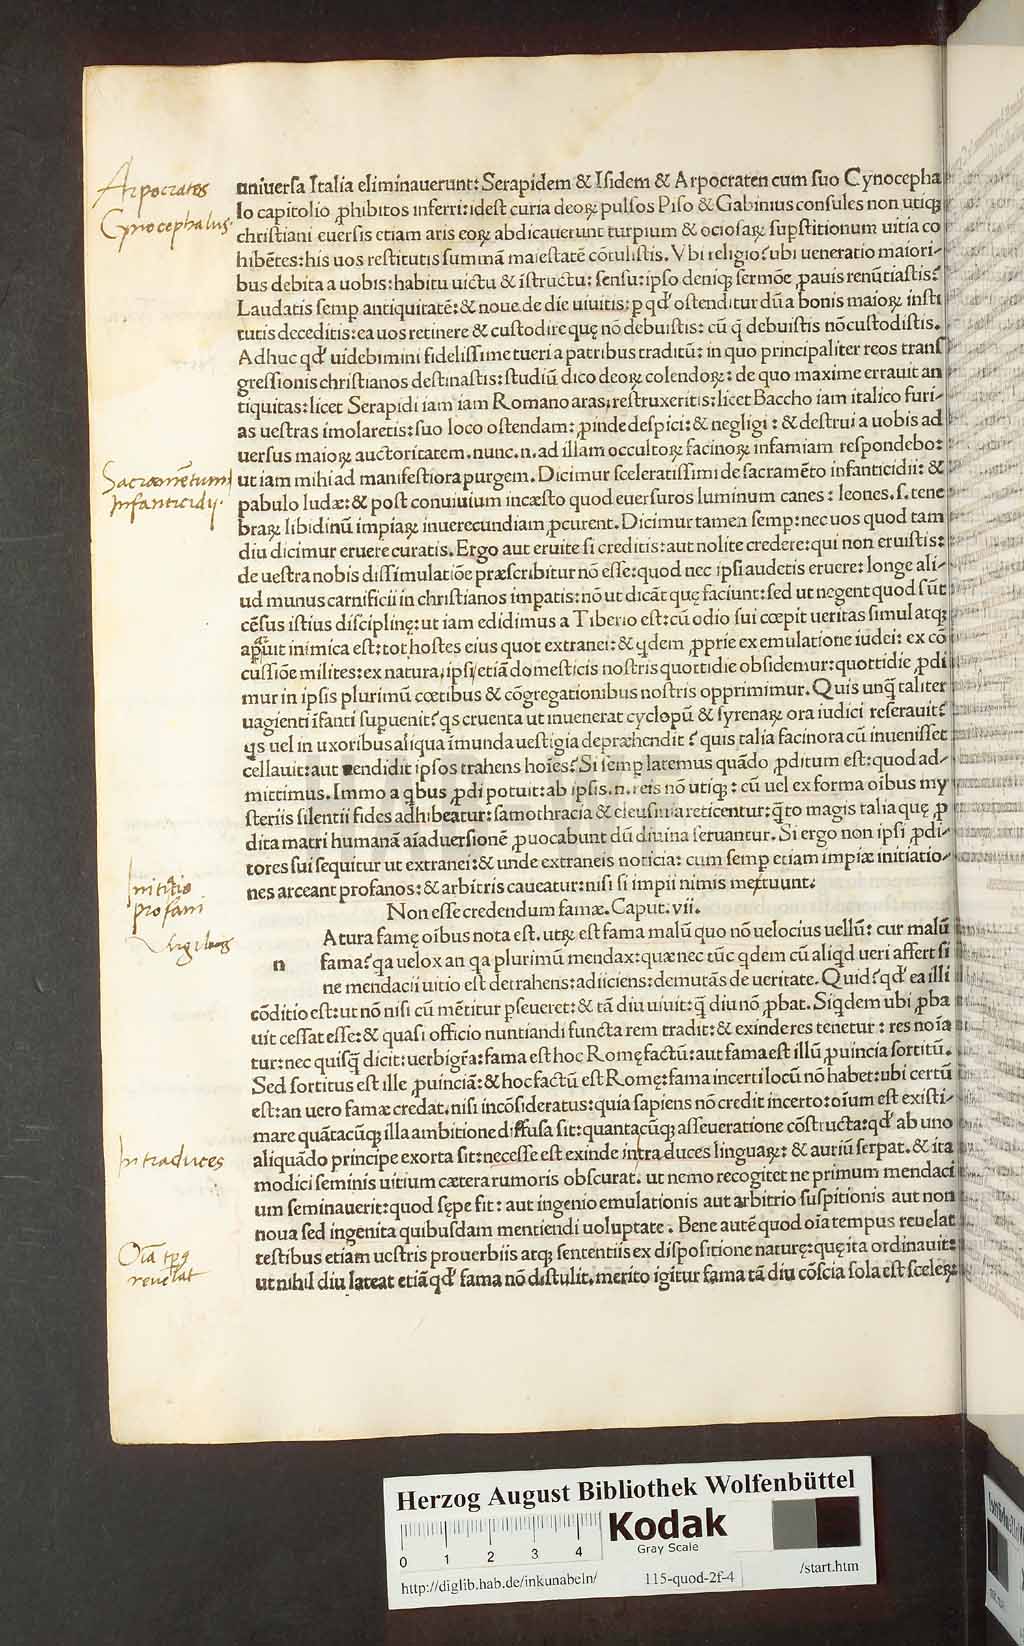 Arpocrates
Cynocephalus.
uniuersa Italia eliminauerunt: Serapidem & Isidem & Arpocraten cum suo Cynocepha
lo capitolio ꝓhibitos inferri: idest curia deoꝝ pulsos Piso & Gabinius consules non utiqꝫ
christiani euersis etiam aris eoꝝ abdicauerunt turpium & ociosaꝝ supstitionum uitia co
hibẽtes: his uos restitutis summã maiestatẽ cõtulistis. Vbi religio? ubi ueneratio maiori-
bus debita a uobis: habitu uictu & ĩstructu: sensu: ipso deniqꝫ sermõe ꝓauis renũtiastis?
Laudatis semꝑ antiquitatẽ: & noue de die uiuitis: ꝑ qđ ostenditur dũ a bonis maioꝝ insti
tutis deceditis: ea uos retinere & custodire quę nõ debuistis: cũ q̃ debuistis nõ custodistis.
Adhuc qđ uidebimini fidelissime tueri a patribus traditũ: in quo principaliter reos trans
gressionis christianos destinastis: studiũ dico deoꝝ colendoꝝ: de quo maxime errauit an
tiquitas: licet Serapidi iam iam Romano aras, restruxeritis: licet Baccho iam italico furi-
as uestras ĩmolaretis: suo loco ostendam: ꝓinde despici: & negligi: & destrui a uobis ad
uersus maioꝝ auctoritatem. nunc. n. ad illam occultoꝝ facinoꝝ infamiam respondebo:
Sacramẽtum
Infanticidij.
ut iam mihi ad manifestiora purgem. Dicimur sceleratissimi de sacramẽto infanticidii: &
pabulo ludæ: & post conuiuium incæsto quod euersuros luminum canes: leones. s. tene
braꝝ libidinũ impiaꝝ inuerecundiam ꝓcurent. Dicimur tamen semꝑ: nec uos quod tam
diu dicimur eruere curatis. Ergo aut eruite si creditis: aut nolite credere: qui non eruistis:
de uestra nobis dissimulatiõe præscribitur nõ esse: quod nec ipsi audetis eruere: longe ali-
ud munus carnificii in christianos impatis: nõ ut dicãt quę faciunt: sed ut negent quod sũt
cẽsus istius disciplinę: ut iam edidimus a Tiberio est: cũ odio sui cœpit ueritas simul atqꝫ
apuit inimica est: tot hostes eius quot extranei: & qdem ꝓprie ex emulatione iudei: ex cõ
cussiõe milites: ex natura, ipsi, etiã domesticis nostris quottidie obsidemur: quottidie ꝓdi
mur in ipsis plurimũ cœtibus & cõgregationibus nostris opprimimur. Quis unq̃ taliter
uagienti ĩfanti supuenit? qs cruenta ut inuenerat cyclopũ & syrenaꝝ ora iudici reserauit?
qs uel in uxoribus aliqua ĩmunda uestigia depræhendit? quis talia facinora cũ inuenisset
cellauit: aut uendidit ipsos trahens hoĩes? Si semꝑ latemus quãdo ꝓditum est: quod ad-
mittimus. Immo a qbus ꝓdi potuit: ab ipsis. n. reis nõ utiqꝫ: cũ uel ex forma oĩbus my
steriis silentii fides adhibeatur: samothracia & eleusinia reticentur: q̃to magis talia quę ꝓ
dita matri humanã aĩaduersionẽ ꝓuocabunt dũ diuina seruantur. Si ergo non ipsi ꝓdi-
tores sui sequitur ut extranei: & unde extraneis noticia: cum semꝑ etiam impiæ initiatio-
Initiatio
profani
nes arceant profanos: & arbitris caueatur: nisi si impii nimis metuunt:
Non esse credendum famæ. Caput. vii.
Virgilius
Atura famę oĩbus nota est. utꝝ est fama malũ quo nõ uelocius uellũ: cur malũ
n fama? qa uelox an qa plurimũ mendax: quæ nec tũc qdem cũ aliqd ueri affert si
ne mendacii uitio est detrahens: adiiciens: demutãs de ueritate. Quid? qđ ea illi
cõditio est: ut nõ nisi cũ mẽtitur ꝑseueret: & tã diu uiuit: q̃ diu nõ ꝓbat. Siqdem ubi ꝓba
uit cessat esse: & quasi officio nuntiandi functa rem tradit: & exinde res tenetur: res noĩa
tur: nec quisq̃ dicit: uerbigr̃a: fama est hoc Romę factũ: aut fama est illũ ꝓuincia sortitũ.
Sed sortitus est ille ꝓuinciã: & hoc factũ est Romę: fama incerti locũ nõ habet: ubi certũ
est: an uero famæ credat. nisi incõsideratus: quia sapiens nõ credit incerto: oĩum est existi-
mare quãtacũqꝫ illa ambitione diffusa sit: quantacũqꝫ asseueratione cõstructa: qđ ab uno
Intraduces
aliquãdo principe exorta sit: necesse est exinde intra duces linguaꝝ: & auriũ serpat. & ita
modici seminis uitium cætera rumoris obscurat. ut nemo recogitet ne primum mendaci
um seminauerit: quod sępe fit: aut ingenio emulationis aut arbitrio suspitionis aut non
noua sed ingenita quibusdam mentiendi uoluptate. Bene autẽ quod oĩa tempus reuelat
Oĩa tp̱s
reuelat
testibus etiam uestris prouerbiis atqꝫ sententiis ex dispositione naturę: quę ita ordinauit:
ut nihil diu lateat etiã qđ fama nõ distulit. merito igitur fama tã diu cõscia sola est sceleꝝ:
Herzog August Bibliothek Wolfenbüttel
Kodak
Gray Scale
0 1 2 3 4
http://diglib.hab.de/inkunabeln/ 115-quod-2f-4 /start.htm